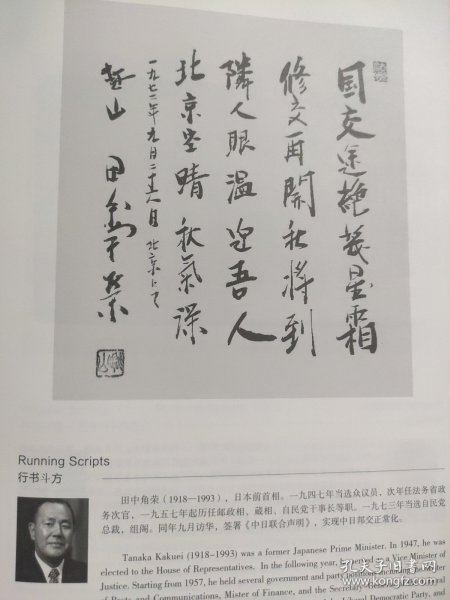 国交途絶幾星霜
修交再開秋将到
隣人眼温迎吾人
北京空晴秋氣深
一九七二年九月 北京にて
越山 田中角榮
Running Scripts
行书斗方
田中角荣(1918—1993),日本前首相。一九四七年当选众议员,次年任法务省政
务次官,一九五七年起历任邮政相、藏相、自民党干事长等职。一九七三年当选自民党
总裁,组阁。同年九月访华,签署《中日联合声明》,实现中日邦交正常化。
Tanaka Kakuei (1918-1993) was a former Japanese Prime Minister. In 1947, he was
elected to the House of Representatives. In the following year, he served as Vice Minister of
Justice. Starting from 1957, he held several government and party positions including Minister
of Posts and Communications, Mister of Finance, and the Secretary-General
Liberal Democratic Party, and
孔夫子旧书网